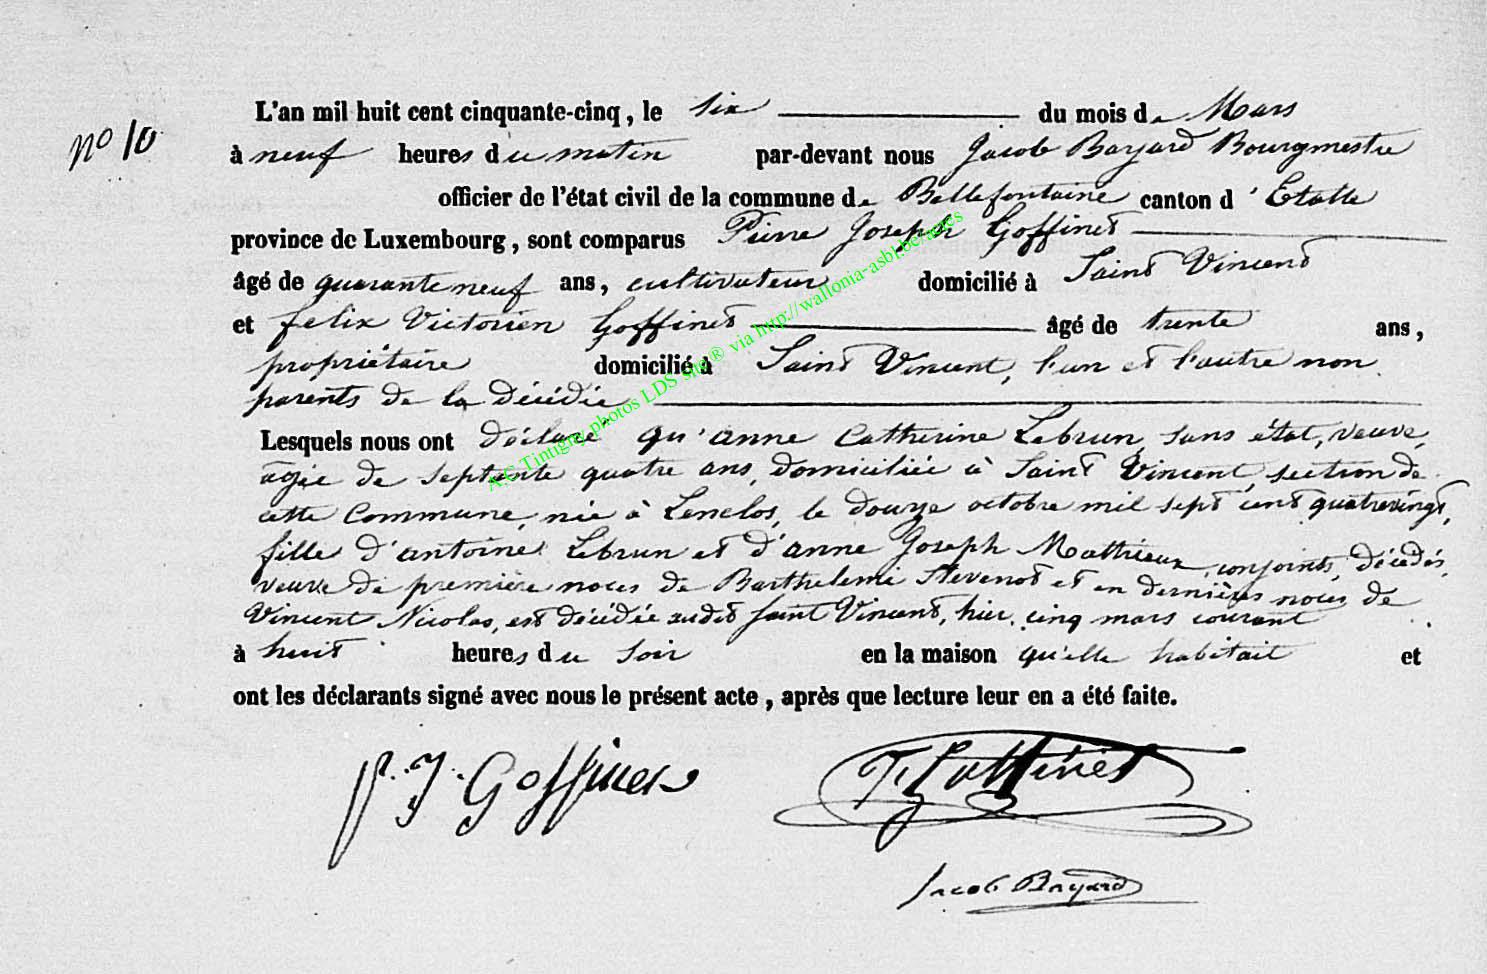 L'an mil huit cent cinquante-cinq, le six du mois de Mars
no 10
à neuf heures du matin par-devant nous Jacob Bayard Bourgmestre
officier de l'état civil de la commune de Bellefontaine canton d'Etalle
province de Luxembourg, sont comparus Pierre Joseph Goffinet
âgé de quarante neuf ans, cultivateur domicilié à Saint Vincent
et felix Victorien Goffinet âgé de trente ans,
propriétaire domicilié à Saint Vincent, l'un et l'autre non
parents de la décédée
Lesquels nous ont déclaré qu'anne Catherine Lebrun sans état, veuve,
agée de septente quatre ans, domiciliée à Saint Vincent, section de
cette Commune, née à Lenclos, le douze octobre mil sept cent quatrevingt,
fille d'antoine Lebrun et d'anne Joseph Mathieux, conjoints, décédés,
veuve de première noces de Barthelemi Stevenot et en dernières noces de
Vincent Nicolas, est décédée audit Saint Vincent, hier, cinq mars courant
à huit heures du soir en la maison qu'elle habitait et
ont les déclarants signé avec nous le présent acte, après que lecture leur en a été faite.
P. J. Goffinet
F. Goffinet
Jacob Bayard
A.C Tintigny photos LDS site® via http://wallonia-asbl.be/actes